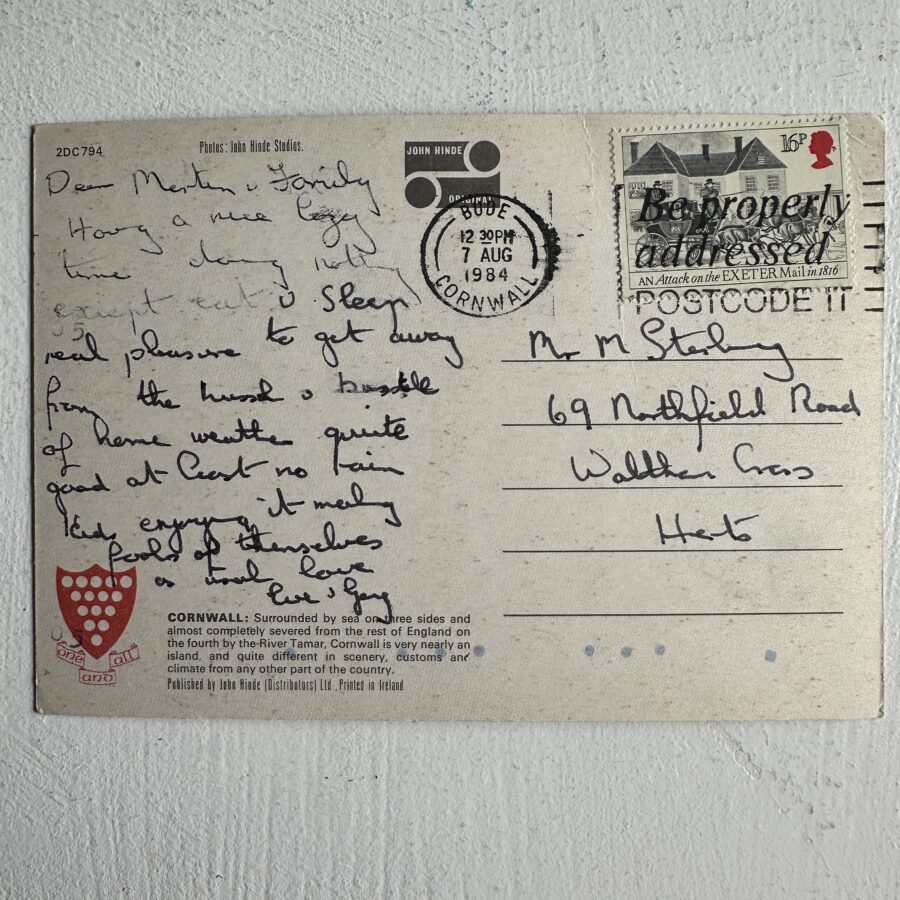 2DC794
Photos: John Hinde Studios.
JOHN HINDE
ORIGINAL
BUDE
12 30PM
7 AUG
1984
CORNWALL
16P
Be properly
addressed
AN Attack on the EXETER Mail in 1816
POSTCODE IT
Dear Martin & Family
Having a nice lazy
time doing nothing
except eat & Sleep
real pleasure to get away
from the hussh & bustle
of home weather quite
good at least no rain
Kids enjoying it making
fools of themselves
as usual love
Eve & Gary
Mr M
69 Northfield Road
Waltham Cross
Herts
one and all
CORNWALL: Surrounded by sea on three sides and
almost completely severed from the rest of England on
the fourth by the River Tamar, Cornwall is very nearly an
island, and quite different in scenery, customs and
climate from any other part of the country.
Published by John Hinde (Distributors) Ltd., Printed in Ireland